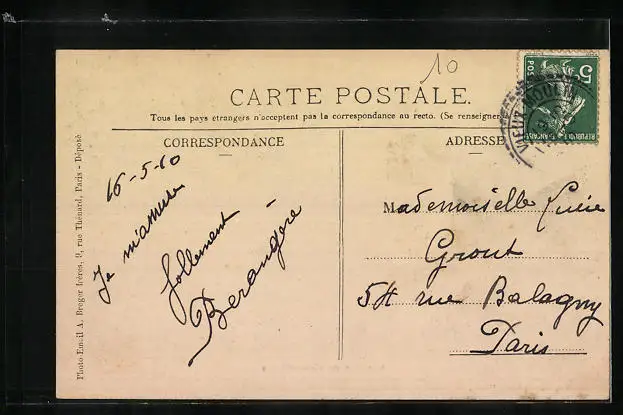 10
CARTE POSTALE.
Tous les pays etrangers n'acceptent pas la correspondance au recto. (Se renseigner
CORRESPONDANCE
ADRESSE
16-5-10
Je m'amuse
follement
Berangère
Mademoiselle Lucie
Grout
54 rue Balagny
Paris
Photo-Email A. Breger frères, 9, rue Thénard, Paris - Déposé
5
POSTES
REPUBLIQUE FRANÇAISE